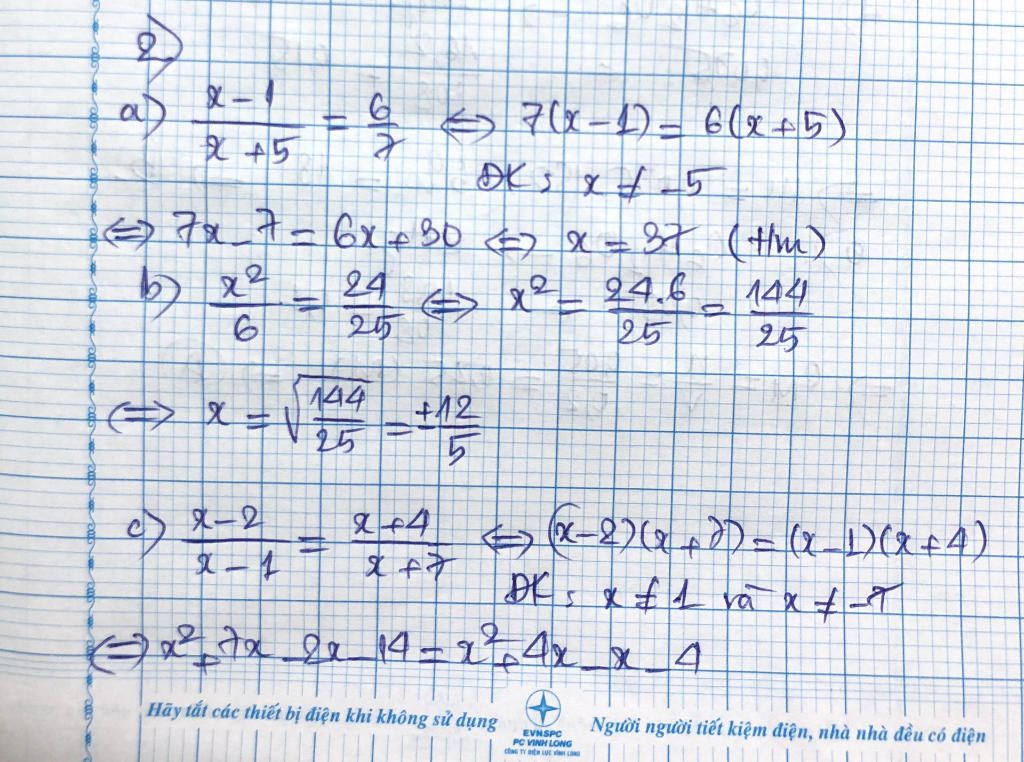 2)
a) x-1/x+5 = 6/7 ⇔ 7(x-1) = 6(x+5)
ĐK: x ≠ -5
⇔ 7x-7 = 6x+30 ⇔ x = 37 (t/m)
b) x²/6 = 24/25 ⇔ x² = 24.6/25 = 144/25
⇔ x = √144/25 = ±12/5
c) x-2/x-1 = x+4/x+7 ⇔ (x-2)(x+7) = (x-1)(x+4)
ĐK: x ≠ 1 và x ≠ -7
⇔ x²+7x-2x-14 = x²+4x-x-4
Hãy tắt các thiết bị điện khi không sử dụng
EVNSPC
PC VINH LONG
CÔNG TY ĐIỆN LỰC VĨNH LONG
Người người tiết kiệm điện, nhà nhà đều có điện